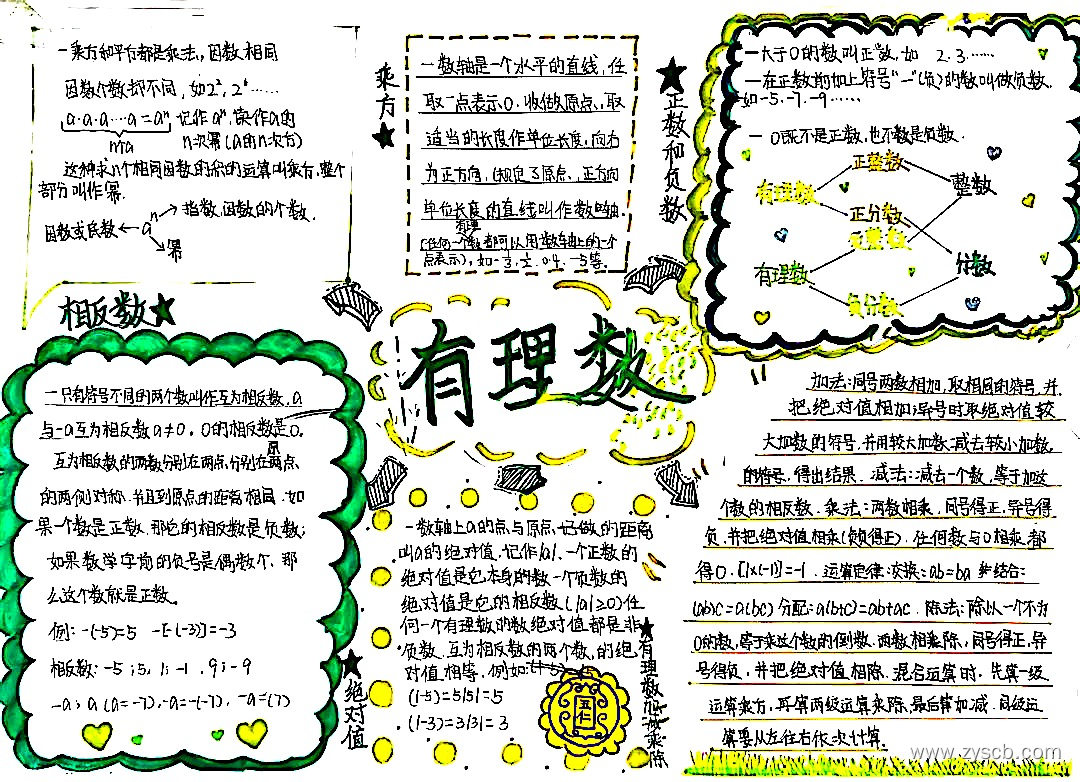 一乘方和平方都是乘法，因数相同
因数个数都不同，如2²，2⁶……
a·a·a…a=aⁿ 记作aⁿ，读作a的
n个a n次幂（a的n次方）
这种求n个相同因数的积的运算叫乘方，整个
部分叫作幂
因数或底数←aⁿ→指数，因数的个数．
幂
乘方★
一数轴是一个水平的直线，任
取一点表示0．收做原点，取
适当的长度作单位长度，向右
为正方向，（规定了原点、正方向
单位长度的直线叫作数轴．
（任何一个有理数都可以用数轴上的一个
点表示），如-⅓．½．0.4．-5等．
★正数和负数
一大于0的数叫正数，如 2．3……
一在正数前加上符号“-”（负）的数叫做负数．
如-5．-7．-9……
一 0既不是正数，也不是负数．
正整数
有理数
整数
正分数
负整数
有理数
分数
负分数
有理数
相反数★
一只有符号不同的两个数叫作互为相反数，a
与-a互为相反数a≠0，0的相反数是0．
互为相反数的两数分别在两点，分别在原点
的两侧对称．并且到原点的距离相同．如
果一个数是正数．那它的相反数是负数；
如果数学字前的负号是偶数个，那
么这个数就是正数．
例：-(-5)=5 -[-(-3)]=-3
相反数：-5；5，1；-1．9；-9
-a；a（a=-7），-a=-(-7)．-a=(7)
★绝对值
一数轴上a的点与原点，记做的距离
叫a的绝对值，记作|a|．一个正数的
绝对值是它本身的数一个负数的
绝对值是它的相反数（|a|≥0）任
何一个有理数的数绝对值都是非
负数．互为相反数的两个数，的绝
对值相等．例如：
(|-5)=5|5|=5
．(|-3)=3|3|=3
五仁
★有理数加减乘除
加法：同号两数相加，取相同的符号，并
把绝对值相加；异号时取绝对值较
大加数的符号．并用较大加数．减去较小加数．
的符号．得出结果．减法：减去一个数，等于加这
个数的相反数．乘法：两数相乘，同号得正，异号得
负．并把绝对值相乘（负负得正）．任何数与0相乘．都
得0．[1×(-1)]=-1．运算定律：交换：ab=ba 结合：
(ab)c=a(bc) 分配：a(b+c)=ab+ac．除法：除以一个不为
0的数，等于乘这个数的倒数．两数相乘除，同号得正，异
号得负，并把绝对值相除．混合运算时．先算一级
运算乘方，再算两级运算乘除．最后算加减．同级运
算要从左往右依次计算．
www.zyscb.com